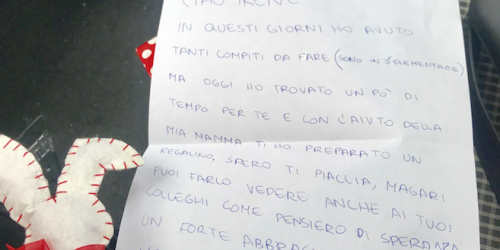 CIAO IRENE
IN QUESTI GIORNI HO AVUTO
TANTI COMPITI DA FARE (SONO IN 5ELEMENTARE)
MA OGGI HO TROVATO UN PO' DI
TEMPO PER TE E CON L'AIUTO DELLA
MIA MAMMA TI HO PREPARATO UN
REGALINO, SPERO TI PIACCIA, MAGARI
PUOI FARLO VEDERE ANCHE AI TUOI
COLLEGHI COME PENSIERO DI SPERANZA
UN FORTE ABBRAC